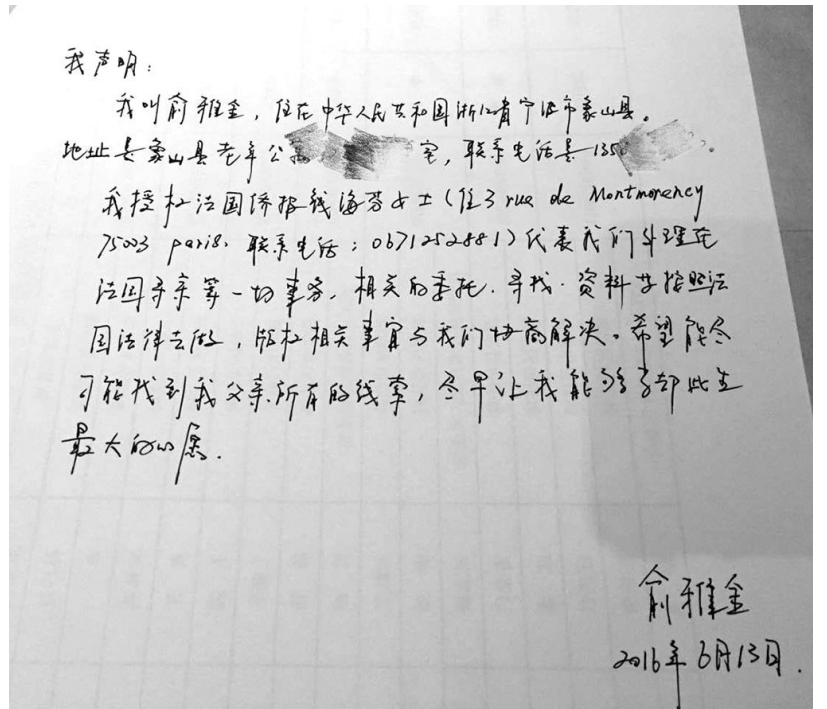 我声明：
我叫俞雅金，住在中华人民共和国浙江省宁波市象山县。
地址是象山县老年公 室，联系电话是135
我授权法国侨报钱海芬女士（住3 rue de Montmorency
75003 paris. 联系电话：0671252881）代表我们处理在
法国寻亲等一切事务，相关的委托．寻找．资料女按照法
国法律去做，版权相关事宜与我们协商解决。希望能尽
可能找到我父亲所有的线索，尽早让我能够了却此生
最大的心愿．
俞雅金
2016年6月13日．